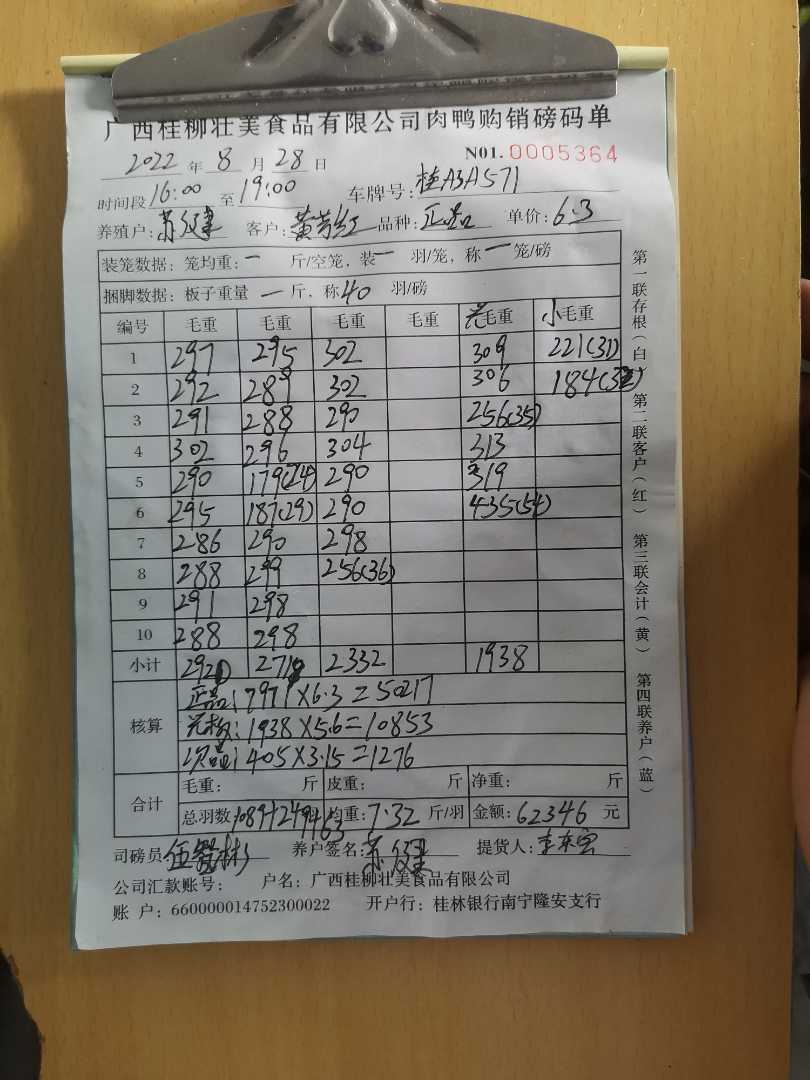 广西桂柳壮美食品有限公司肉鸭购销磅码单
2022 年 8 月 28 日 N01. 0005364
时间段 16:00 至 19:00 车牌号: 桂A3A571
养殖户: 客户: 黄芳红 品种: 正品 单价: 6.3
装笼数据: 笼均重: 一 斤/空笼, 装 一 羽/笼, 称 一 笼/磅
捆脚数据: 板子重量 一 斤, 称 40 羽/磅
编号 毛重 毛重 毛重 毛重 毛重 小毛重
1 297 295 302 309 221(31)
2 292 289 302 306
3 291 288 290 256(35)
4 302 296 304 313
5 290 179(24) 290 319
6 295 187(29) 290 435(54)
7 286 290 298
8 288 299 256(36)
9 291 298
10 288 298
小计 2332 1938
核算 正品: 7971×6.3=50217
1938×5.6=10853
次品: 405×3.15=1276
合计 毛重: 斤 皮重: 斤 净重: 斤
总羽数 1089+249+63 均重: 7.32 斤/羽 金额: 62346 元
司磅员 养户签名: 提货人:
公司汇款账号: 户名: 广西桂柳壮美食品有限公司
账 户: 660000014752300022 开户行: 桂林银行南宁隆安支行
第一联存根(白) 第二联客户(红) 第三联会计(黄) 第四联养户(蓝)